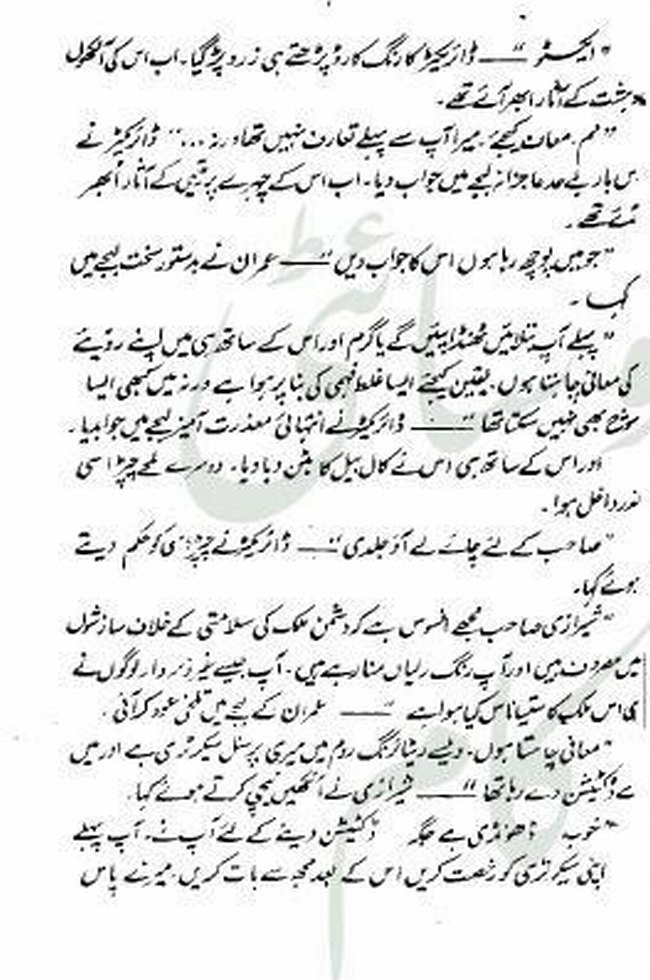 "ایکسٹو" —— ڈائریکٹر کا رنگ کارڈ پڑھتے ہی زرد پڑ گیا۔ اب اس کی آنکھوں
دہشت کے آثار ابھر آئے تھے۔
"مم۔ معاف کیجئے، میرا آپ سے پہلے تعارف نہیں تھا ورنہ ..." ڈائریکٹر نے
اس بار بے حد عاجزانہ لہجے میں جواب دیا۔ اب اس کے چہرے پر یتیمی کے آثار ابھر
آئے تھے۔
"جو میں پوچھ رہا ہوں اس کا جواب دیں" —— عمران نے بدستور سخت لہجے میں
کہا۔
"پہلے آپ بتلائیں ٹھنڈا پئیں گے یا گرم اور اس کے ساتھ ہی میں اپنے رویئے
کی معافی چاہتا ہوں۔ یقین کیجئے ایسا غلط فہمی کی بنا پر ہوا ہے ورنہ میں کبھی ایسا
سوچ بھی نہیں سکتا تھا" —— ڈائریکٹر نے انتہائی معذرت آمیز لہجے میں جواب دیا۔
اور اس کے ساتھ ہی اس نے کال بیل کا بٹن دبا دیا۔ دوسرے لمحے چپڑاسی
اندر داخل ہوا۔
"صاحب کے لئے چائے لے آؤ جلدی" —— ڈائریکٹر نے چپڑاسی کو حکم دیتے
ہوئے کہا۔
"شیرازی صاحب مجھے افسوس ہے کہ دشمن ملک کی سلامتی کے خلاف سازشوں
میں مصروف ہیں اور آپ رنگ رلیاں منا رہے ہیں۔ آپ جیسے غیر ذمہ دار لوگوں نے
ہی اس ملک کا ستیاناس کیا ہوا ہے" —— عمران کے لہجے میں تلخی عود کر آئی۔
"معافی چاہتا ہوں۔ ویسے ریٹائرنگ روم میں میری پرسنل سیکرٹری ہے اور میں
اسے ڈکٹیشن دے رہا تھا" —— شیرازی نے آنکھیں نیچی کرتے ہوئے کہا۔
"خوب ڈھونڈی ہے جگہ ڈکٹیشن دینے کے لئے آپ نے۔ آپ پہلے
اپنی سیکرٹری کو رخصت کریں اس کے بعد مجھ سے بات کریں، میرے پاس